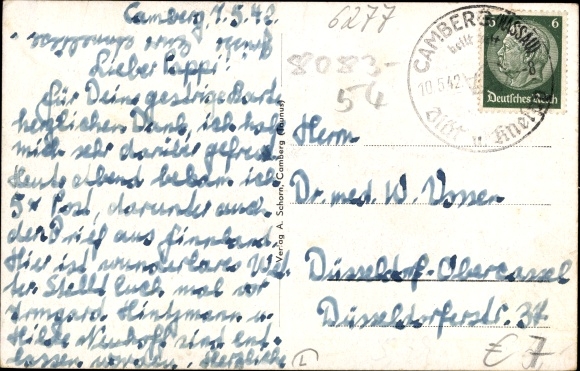 Camberg, 9.5.42.
Lieber Pappi!
für Deine gestrige Karte
herzlichen Dank, ich hab
mich sehr darüber gefreut
Heute abend bekam ich
5x Post, darunter auch
der Brief aus Finnland.
Hier ist wunderbares Wet-
ter. Stellt Euch mal vor
Irmgard Hintzmann u.
Hilde Neuhoff sind ent-
lassen worden. Herzliche
Verlag A. Schorn, Camberg (Taunus)
6277
8083-
54
CAMBERG NASSAU
heilt
10.5.42
Diät u. Kneipp
6 6
Deutsches Reich
Herrn
Dr. med. W. Vossen
Düsseldorf-Obercassel
Düsseldorferstr. 37
L
€ 7,-